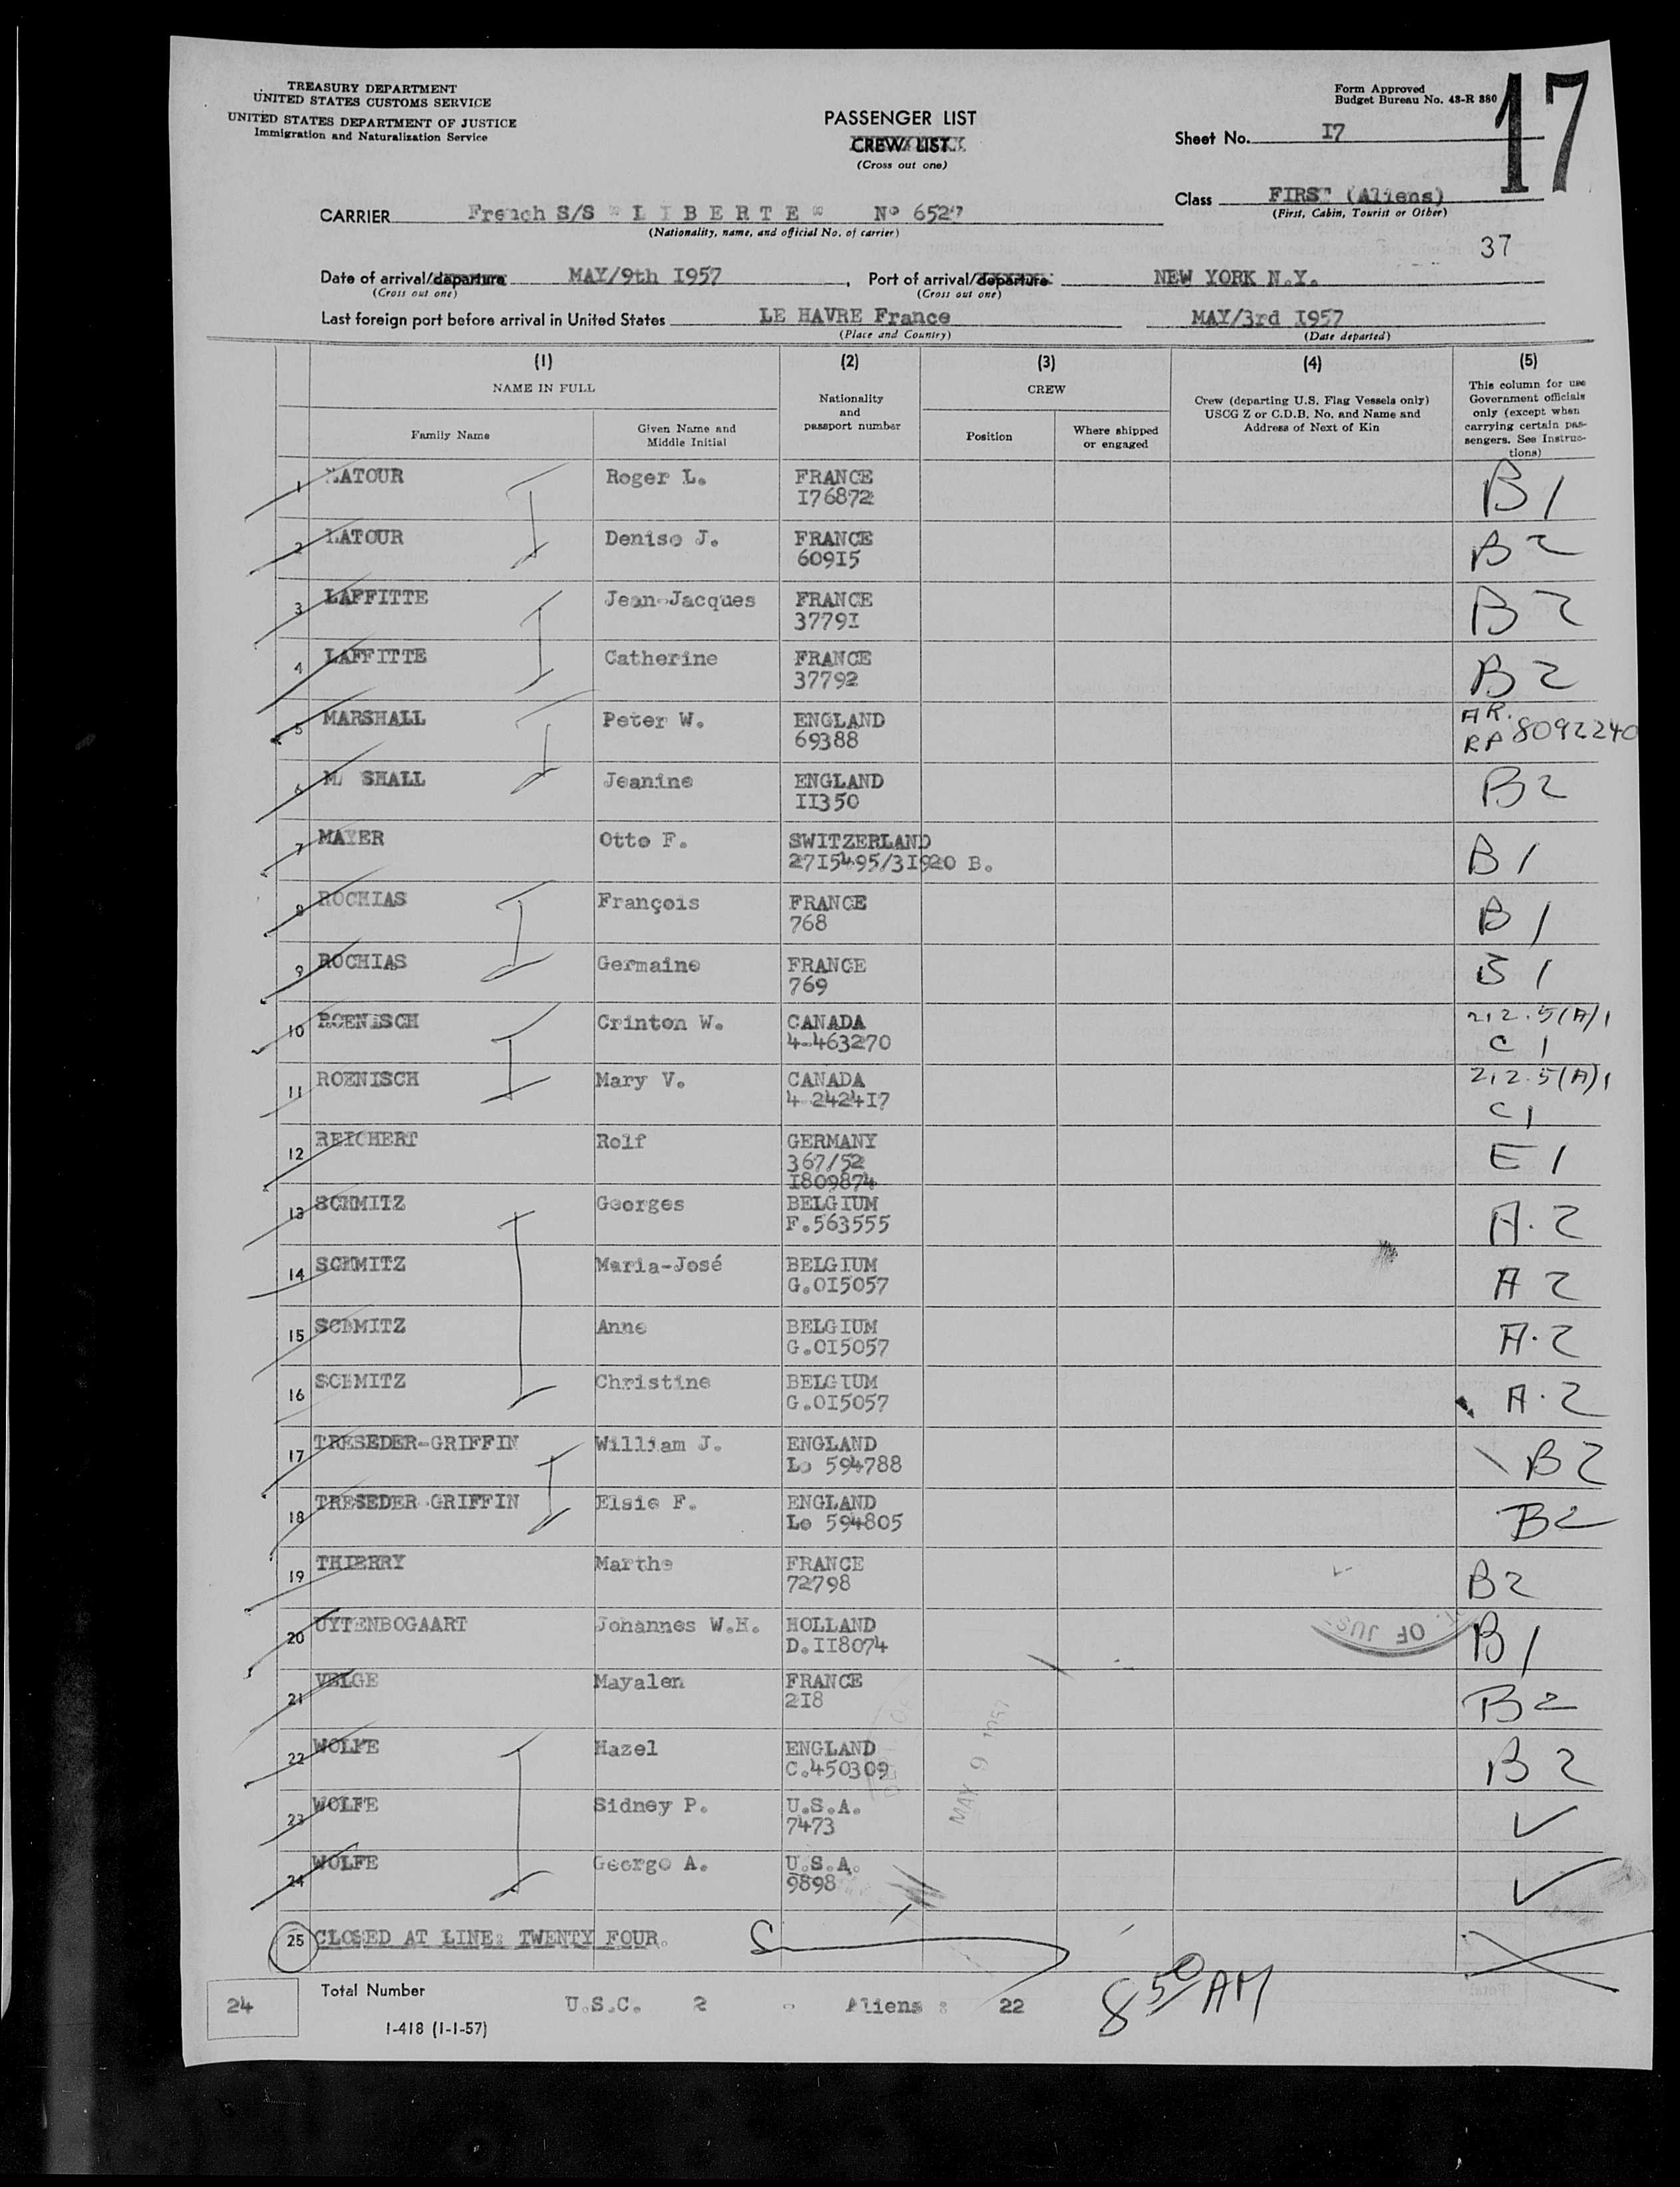 TREASURY DEPARTMENT
UNITED STATES CUSTOMS SERVICE
UNITED STATES DEPARTMENT OF JUSTICE
Immigration and Naturalization Service
PASSENGER LIST
CREW LIST
(Cross out one)
Form Approved
Budget Bureau No. 43-R 380
17
Sheet No. I7
Class FIRST (Aliens)
(First, Cabin, Tourist or Other)
CARRIER French S/S " L I B E R T E " N° 6527
(Nationality, name, and official No. of carrier)
37
Date of arrival/departure MAY/9th I957, Port of arrival/departure NEW YORK N.Y.
(Cross out one) (Cross out one)
Last foreign port before arrival in United States LE HAVRE France MAY/3rd I957
(Place and Country) (Date departed)
(1) (2) (3) (4) (5)
NAME IN FULL
Family Name
Given Name and
Middle Initial
Nationality
and
passport number
CREW
Position
Where shipped
or engaged
Crew (departing U.S. Flag Vessels only)
USCG Z or C.D.B. No. and Name and
Address of Next of Kin
This column for use
Government officials
only (except when
carrying certain pas-
sengers. See Instruc-
tions)
1 LATOUR Roger L. FRANCE B1
I76872
2 LATOUR Denise J. FRANCE B2
609I5
3 LAFFITTE Jean-Jacques FRANCE B2
3779I
4 LAFFITTE Catherine FRANCE B2
37792
5 MARSHALL Peter W. ENGLAND AR.
69388 RP 8092240
6 M SHALL Jeanine ENGLAND B2
II350
7 MAYER Otto F. SWITZERLAND B1
27I5495/3I920 B.
8 ROCHIAS François FRANCE B1
768
9 ROCHIAS Germaine FRANCE B1
769
10 ROENISCH Crinton W. CANADA 212.5(A)1
4-463270 C1
11 ROENISCH Mary V. CANADA 212.5(A)1
4-2424I7 C1
12 REICHERT Rolf GERMANY E1
367/52
I809874
13 SCHMITZ Georges BELGIUM A.2
F.563555
14 SCHMITZ Maria-José BELGIUM A2
G.0I5057
15 SCHMITZ Anne BELGIUM A.2
G.0I5057
16 SCHMITZ Christine BELGIUM A.2
G.0I5057
17 TRESEDER-GRIFFIN William J. ENGLAND B2
Lo 594788
18 TRESEDER-GRIFFIN Elsie F. ENGLAND B2
Lo 594805
19 THIERRY Marthe FRANCE B2
72798
20 UYTENBOGAART Johannes W.H. HOLLAND B1
D.II8074
OF JUS
21 VELGE Mayalen FRANCE B2
2I8
22 WOLFE Hazel ENGLAND B2
C.450309
MAY 9 1957
23 WOLFE Sidney P. U.S.A.
7473
24 WOLFE George A. U.S.A.
9898
25 CLOSED AT LINE: TWENTY FOUR.
24 Total Number U.S.C. 2 - Aliens : 22
8 50 AM
I-418 (1-1-57)